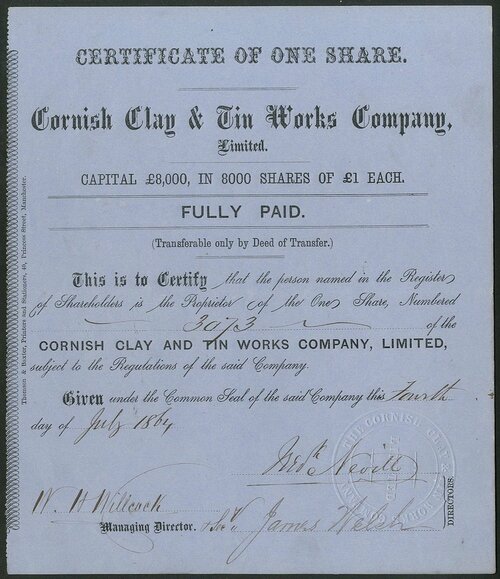 CERTIFICATE OF ONE SHARE.
Cornish Clay & Tin Works Company,
Limited.
CAPITAL £8,000, IN 8000 SHARES OF £1 EACH.
FULLY PAID.
(Transferable only by Deed of Transfer.)
This is to Certify that the person named in the Register
of Shareholders is the Proprietor of the One Share, Numbered
3073 of the
CORNISH CLAY AND TIN WORKS COMPANY, LIMITED,
subject to the Regulations of the said Company.
Given under the Common Seal of the said Company this Fourth
day of July 1864
Fredk Nevill
W. H. Willcock
Managing Director. & Secy James Welsh
DIRECTORS.
THE CORNISH CLAY &
Thomson & Baxter, Printers and Stationers, 49, Princess Street, Manchester.